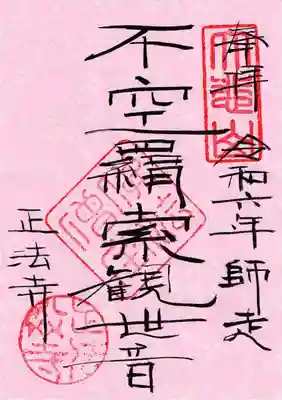 奉拝 令和六年 師走
不空羂索観世音
正法寺